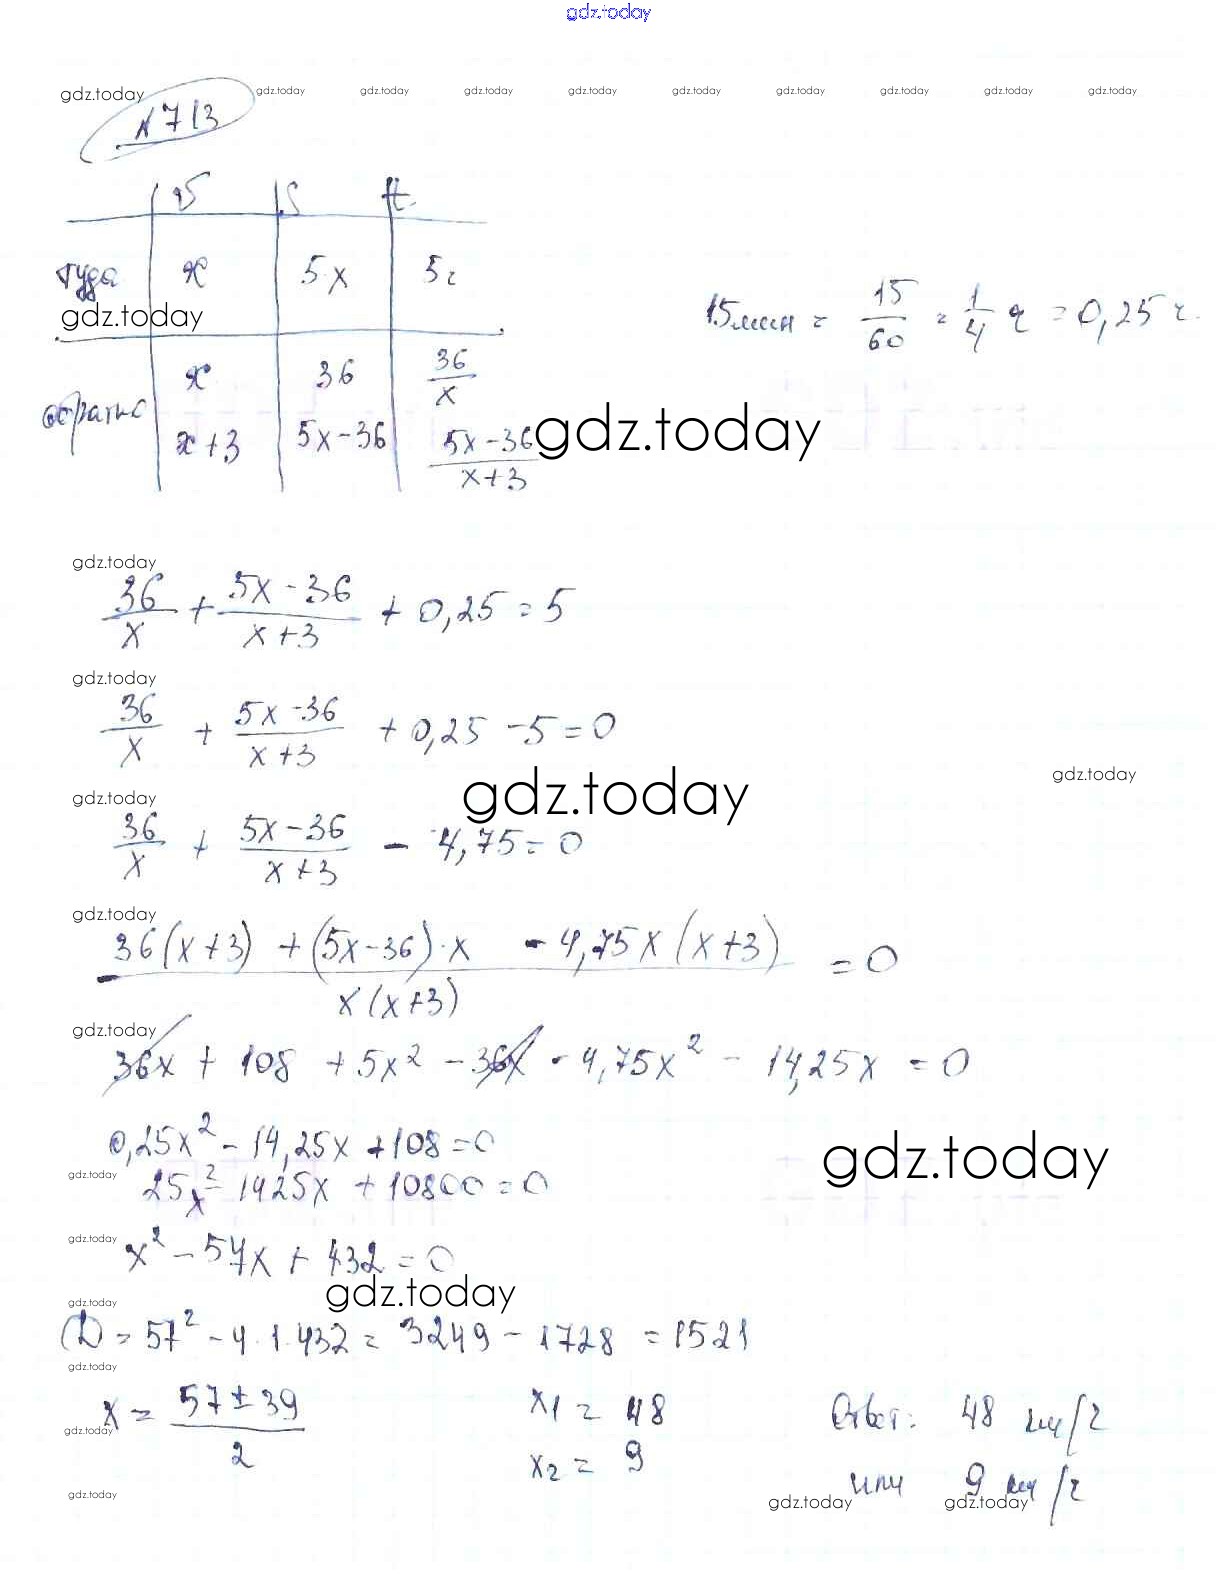 gdz.today
gdz.today gdz.today gdz.today gdz.today gdz.today gdz.today gdz.today gdz.today gdz.today gdz.today
N 713
v S t
туда x 5x 5ч
gdz.today
15мин = 15/60 = 1/4 ч = 0,25 ч.
обратно x 36 36/x
x+3 5x-36 (5x-36)/(x+3)
gdz.today
gdz.today
36/x + (5x-36)/(x+3) + 0,25 = 5
gdz.today
36/x + (5x-36)/(x+3) + 0,25 -5 = 0
gdz.today gdz.today
gdz.today
36/x + (5x-36)/(x+3) - 4,75 = 0
gdz.today
(36(x+3) + (5x-36)·x - 4,75x(x+3))/(x(x+3)) = 0
gdz.today
36x + 108 + 5x² - 36x - 4,75x² - 14,25x = 0
0,25x² - 14,25x + 108 = 0
gdz.today
gdz.today
25x² - 1425x + 10800 = 0
gdz.today
x² - 57x + 432 = 0
gdz.today
gdz.today
D = 57² - 4·1·432 = 3249 - 1728 = 1521
gdz.today
x = (57 ± 39)/2 x₁ = 48 Ответ: 48 км/ч
gdz.today
x₂ = 9 или 9 км/ч
gdz.today gdz.today gdz.today